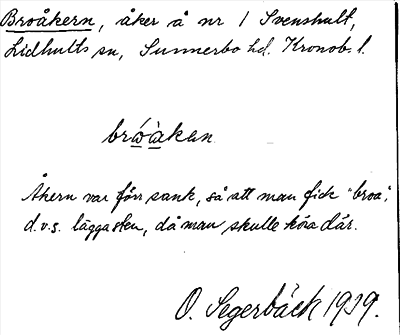 Broåkern, åker å nr 1 Svenshult,
Lidhults sn, Sunnerbo hd. Kronob. l.
brώὰkan
Åkern var förr sank, så att man fick "broa",
d.v.s. lägga sten, då man skulle köra där.
O. Segerbäck 1939.